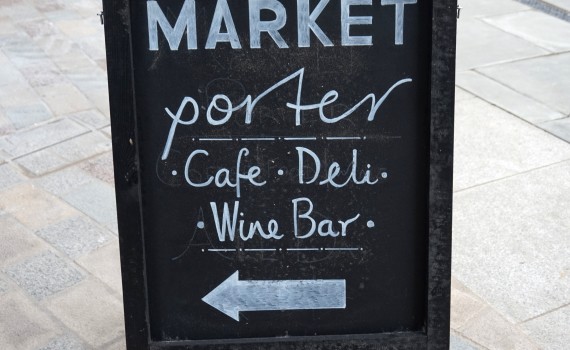 MARKET
porter
·Cafe·Deli·
·Wine Bar·